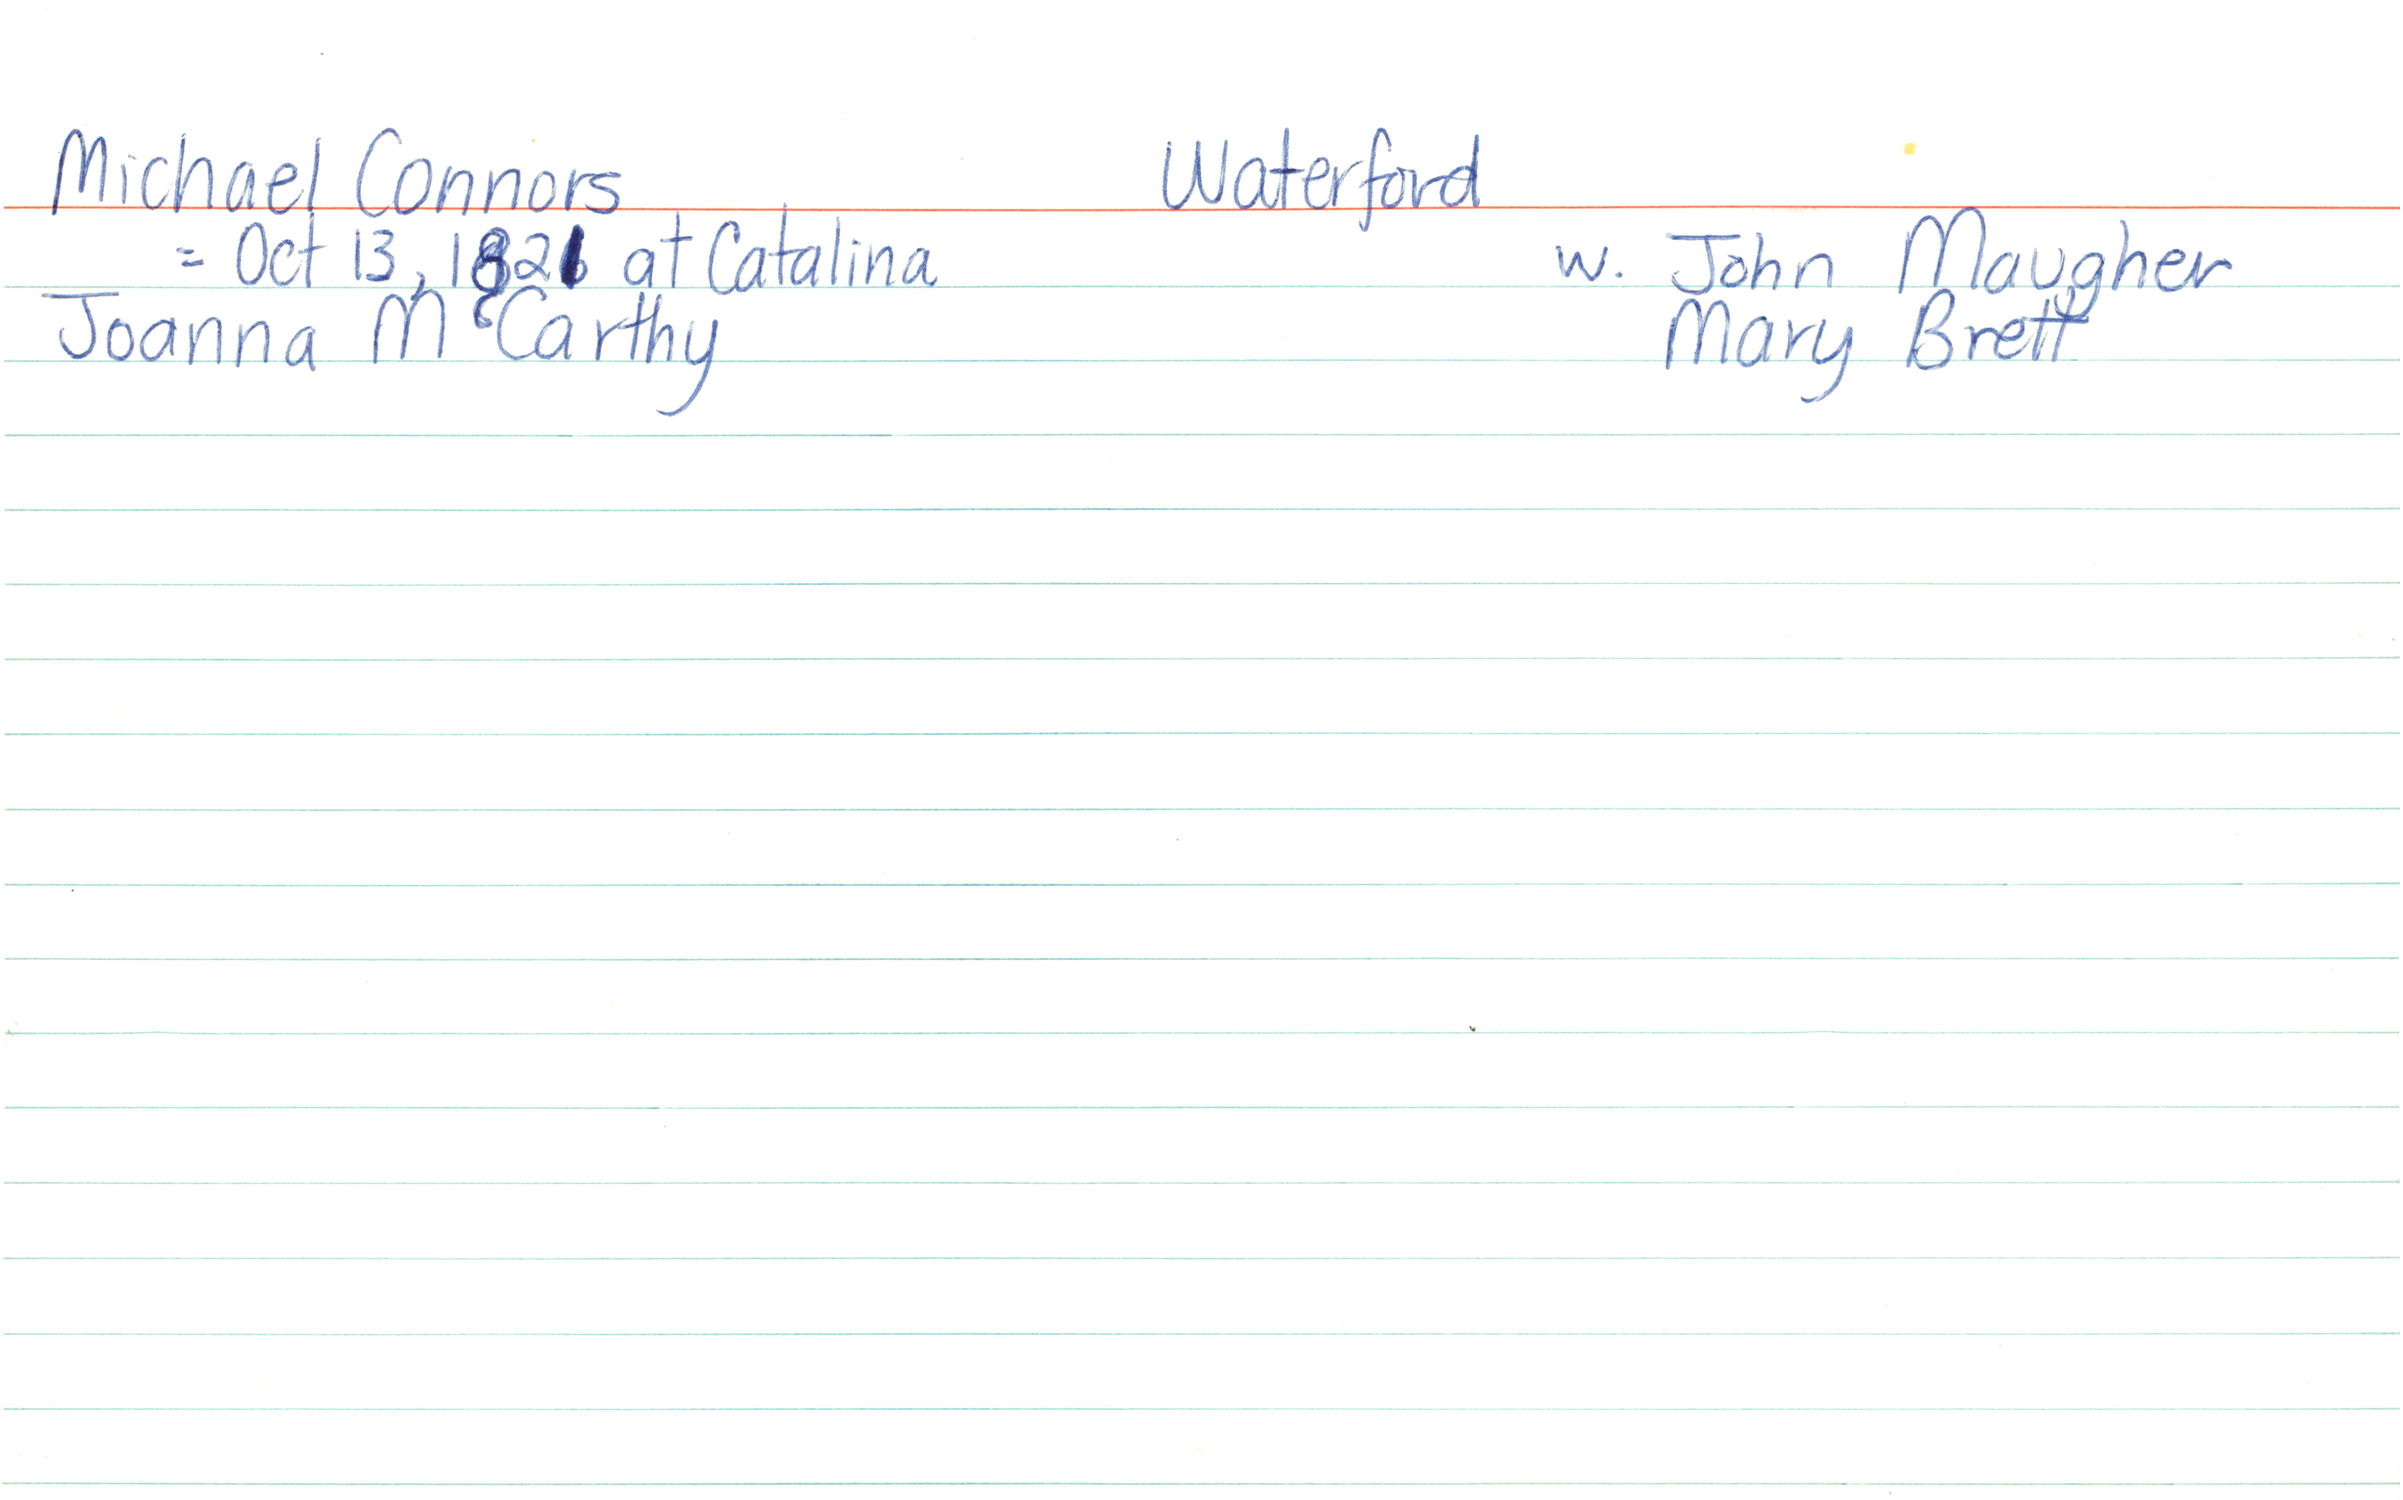 Michael Connors Waterford
= Oct 13, 1821 at Catalina w. John Maugher
Joanna McCarthy Mary Brett